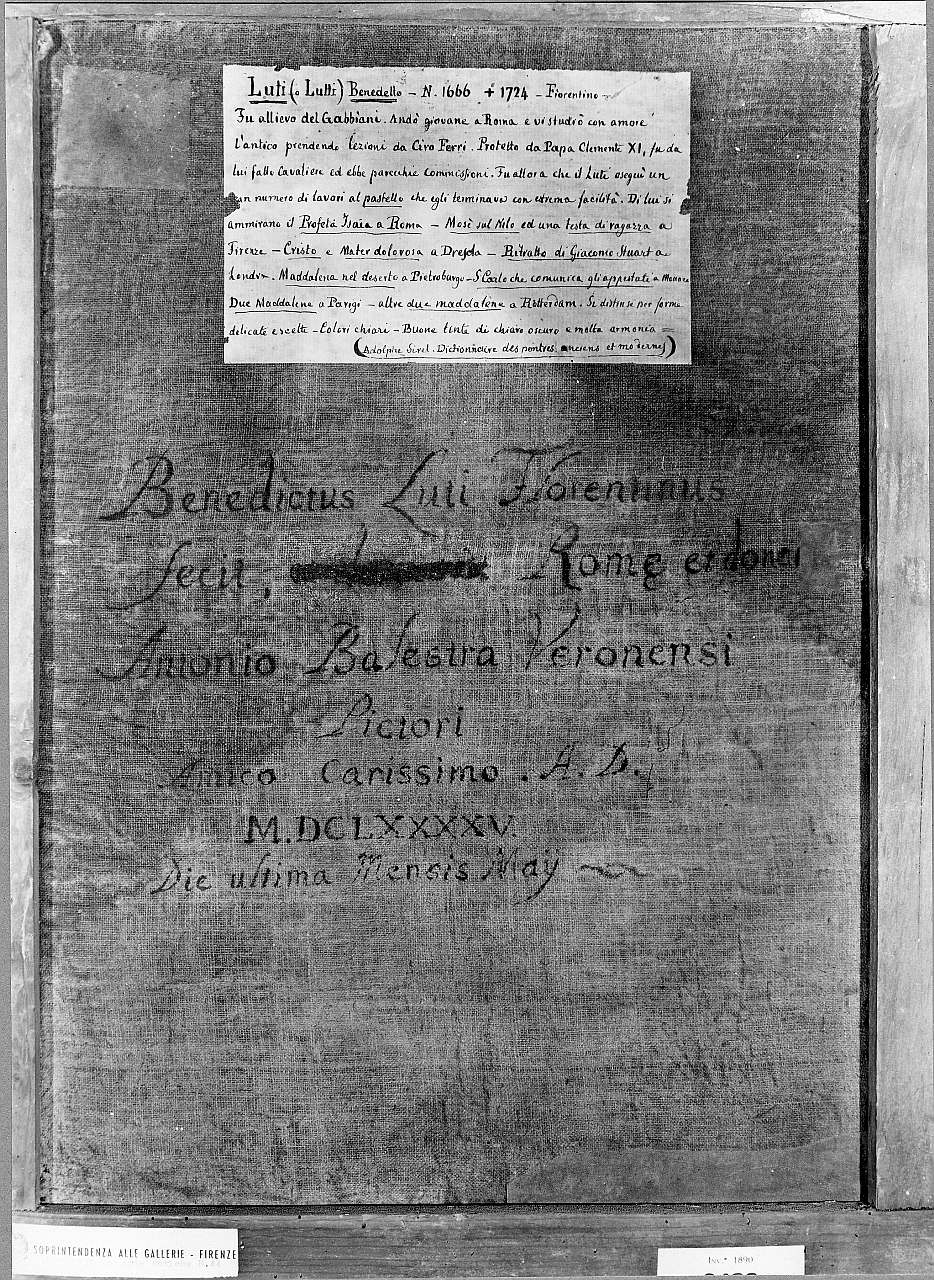 Luti (o Lutti) Benedetto - N. 1666 + 1724 - Fiorentino
Fu allievo del Gabbiani. Andò giovane a Roma e vi studiò con amore
l'antico prendendo lezioni da Ciro Ferri. Protetto da Papa Clemente XI, fu da
lui fatto Cavaliere ed ebbe parecchie commissioni. Fu allora che il Luti eseguì un
numero di lavori al pastello che egli terminava con estrema facilità. Di lui si
ammirano il Profeta Isaia a Roma - Mosè sul Nilo ed una testa di ragazza a
Firenze - Cristo e Mater dolorosa a Dresda - Ritratto di Giacomo Stuart a
Londra - Maddalena nel deserto a Pietroburgo - S. Carlo che comunica gli appestati a
Due Maddalene a Parigi - altre due maddalene a Rotterdam. Si distinse per forme
delicate e scelte - Colori chiari - Buone tinte di chiaro oscuro e molta armonia =
(Adolphe Siret. Dictionnaire des peintres anciens et modernes)
Benedictus Luti Florentinus
fecit, Rome et donei
Antonio Balestra Veronensi
Pictori
Amico Carissimo . A. D.
M.DCLXXXXV.
Die ultima Mensis Maÿ
SOPRINTENDENZA ALLE GALLERIE - FIRENZE
Inv.° 1890